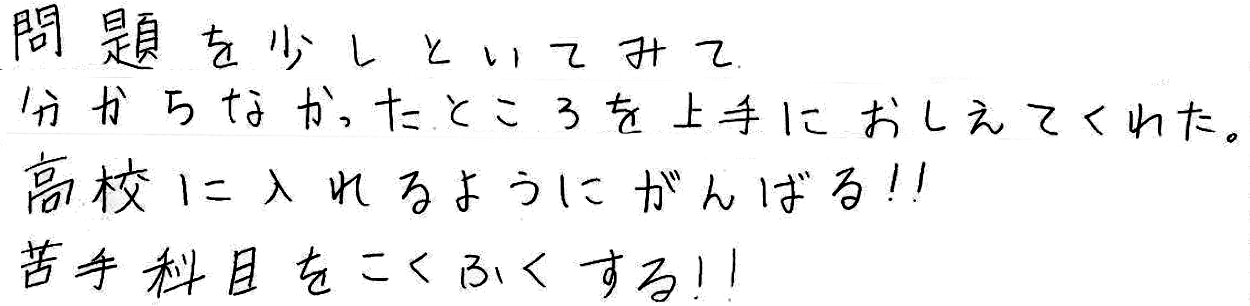 問題を少しといてみて
分からなかったところを上手におしえてくれた。
高校に入れるようにがんばる!!
苦手科目をこくふくする!!